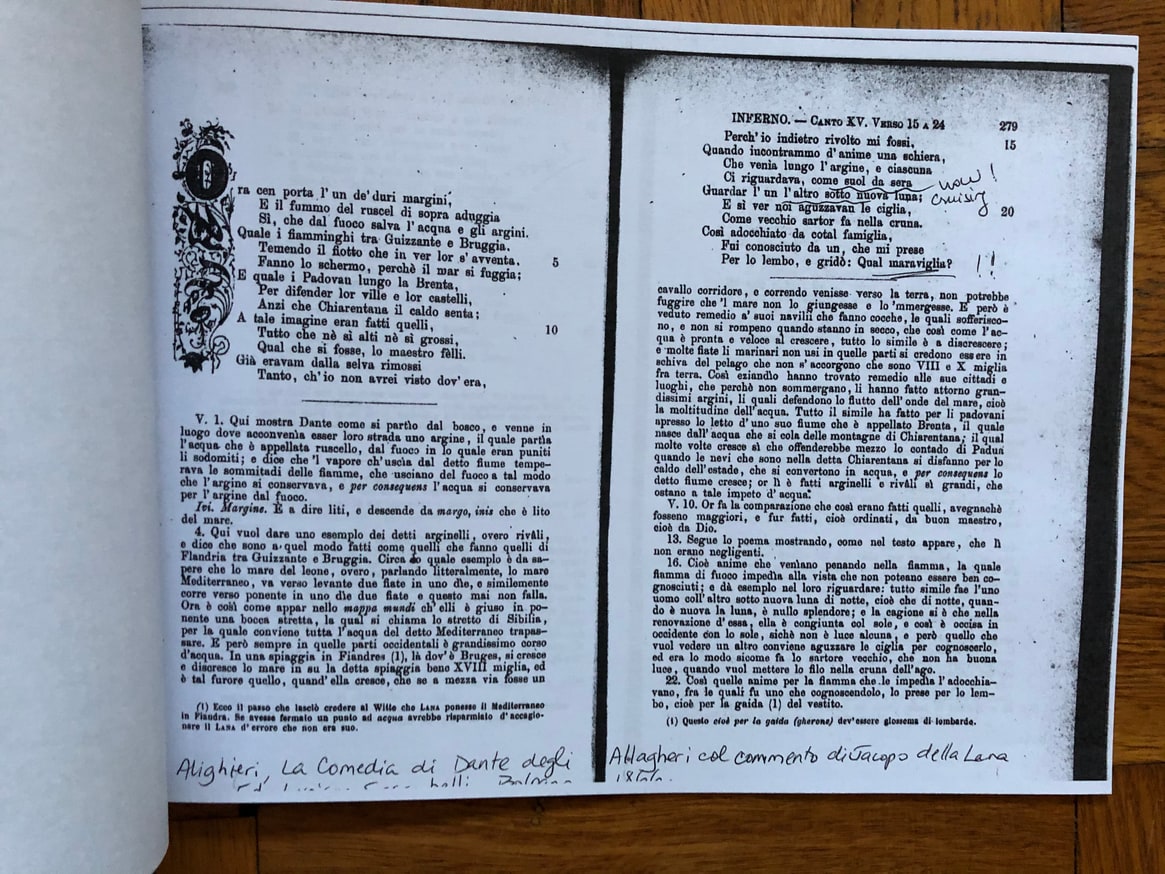 Ora cen porta l'un de' duri margini,
E il fummo del ruscel di sopra aduggia
Sì, che dal fuoco salva l'acqua e gli argini.
Quale i fiamminghi tra Guizzante e Bruggia.
Temendo il fiotto che in ver lor s'avventa, 5
Fanno lo schermo, perchè il mar si fuggia;
E quale i Padovan lungo la Brenta,
Per difender lor ville e lor castelli,
Anzi che Chiarentana il caldo senta;
A tale imagine eran fatti quelli, 10
Tutto che nè sì alti nè sì grossi,
Qual che si fosse, lo maestro fêlli.
Già eravam dalla selva rimossi
Tanto, ch'io non avrei visto dov'era,
V. 1. Qui mostra Dante come si partìo dal bosco, e venne in
luogo dove acconvenìa esser loro strada uno argine, il quale partìa
l'acqua che è appellata ruscello, dal fuoco in lo quale eran puniti
li sodomiti; e dice che 'l vapore ch'uscìa dal detto fiume tempe-
rava le sommitadi delle fiamme, che usciano del fuoco a tal modo
che l'argine si conservava, e per consequens l'acqua si conservava
per l'argine dal fuoco.
Ivi. Margine. È a dire liti, e descende da margo, inis che è lito
del mare.
4. Qui vuol dare uno esempio dei detti arginelli, overo rivàli,
e dice che sono a quel modo fatti come quelli che fanno quelli di
Flandria tra Guizzante e Bruggia. Circa lo quale esempio è da sa-
pere che lo mare del leone, overo, parlando litteralmente, lo mare
Mediterraneo, va verso levante due fiate in uno die, e similemente
corre verso ponente in uno dìe due fiate e questo mai non falla.
Ora è così come appar nello mappa mundi ch'elli è giuso in po-
nente una bocca stretta, la qual si chiama lo stretto di Sibilia,
per la quale conviene tutta l'acqua del detto Mediterraneo trapas-
sare. E però sempre in quelle parti occidentali è grandissimo corso
d'acqua. In una spiaggia in Fiandres (1), là dov'è Bruges, si cresce
e discresce lo mare in su la detta spiaggia bene XVIII miglia, ed
è tal furore quello, quand'ella cresce, che se a mezza via fosse un
(1) Ecco il passo che lasciò credere al Witte che LANA ponesse il Mediterraneo
in Fiandra. Se avesse fermato un punto ad acqua avrebbe risparmiato d'accagio-
nare il LANA d'errore che non era suo.
Alighieri, La Comedia di Dante degli
INFERNO. — CANTO XV. VERSO 15 A 24 279
Perch'io indietro rivolto mi fossi, 15
Quando incontrammo d'anime una schiera,
Che venìa lungo l'argine, e ciascuna
Ci riguardava, come suol da sera
wow!
Guardar l'un l'altro sotto nuova luna;
cruising
E sì ver noi aguzzavan le ciglia, 20
Come vecchio sartor fa nella cruna.
Così adocchiato da cotal famiglia,
Fui conosciuto da un, che mi prese
Per lo lembo, e gridò: Qual maraviglia? !!
cavallo corridore, e correndo venisse verso la terra, non potrebbe
fuggire che 'l mare non lo giungesse e lo 'mmergesse. E però è
veduto remedio a' suoi navilli che fanno cocche, le quali sofferisco-
no, e non si rompeno quando stanno in secco, che così come l'ac-
qua è pronta e veloce al crescere, tutto lo simile è a discrescere;
e molte fiate li marinari non usi in quelle parti si credono essere in
schiva del pelago che non s'accorgono che sono VIII e X miglia
fra terra. Così eziandìo hanno trovato remedio alle sue cittadi e
luoghi, che perchè non sommergano, li hanno fatto attorno gran-
dissimi argini, li quali defendono lo flutto dell'onde del mare, cioè
la moltitudine dell'acqua. Tutto il simile ha fatto per li padovani
apresso lo letto d'uno suo fiume che è appellato Brenta, il quale
nasce dall'acqua che si cola delle montagne di Chiarentana; il qual
molte volte cresce sì che offenderebbe mezzo lo contado di Padua
quando le nevi che sono nella detta Chiarentana si disfanno per lo
caldo dell'estade, che si convertono in acqua, e per consequens lo
detto fiume cresce; or lì è fatti arginelli e rivàli sì grandi, che
ostano a tale impeto d'acqua.
V. 10. Or fa la comparazione che così erano fatti quelli, avegnachè
fosseno maggiori, e fur fatti, cioè ordinati, da buon maestro,
cioè da Dio.
13. Segue lo poema mostrando, come nel testo appare, che lì
non erano negligenti.
16. Cioè anime che venìano penando nella fiamma, la quale
fiamma di fuoco impedìa alla vista che non poteano essere ben co-
gnosciuti; e dà esempio nel loro riguardare: tutto simile fae l'uno
uomo coll'altro sotto nuova luna di notte, cioè che di notte, quan-
do è nuova la luna, è nullo splendore; e la cagione si è che nella
renovazione d'essa, ella è congiunta col sole, e così è occisa in
occidente con lo sole, sichè non è luce alcuna, e però quello che
vuol vedere un altro conviene aguzzare le ciglia per cognoscerlo,
ed era lo modo sicome fa lo sartore vecchio, che non ha buona
luce, quando vuol mettere lo filo nella cruna dell'ago.
22. Così quelle anime per la fiamma che le impedìa l'adocchia-
vano, fra le quali fu uno che cognoscendolo, lo prese per lo lem-
bo, cioè per la gaida (1) del vestito.
(1) Questo cioè per la gaida (gherone) dev'essere glossema di lombardo.
Allagheri col commento di Jacopo della Lana